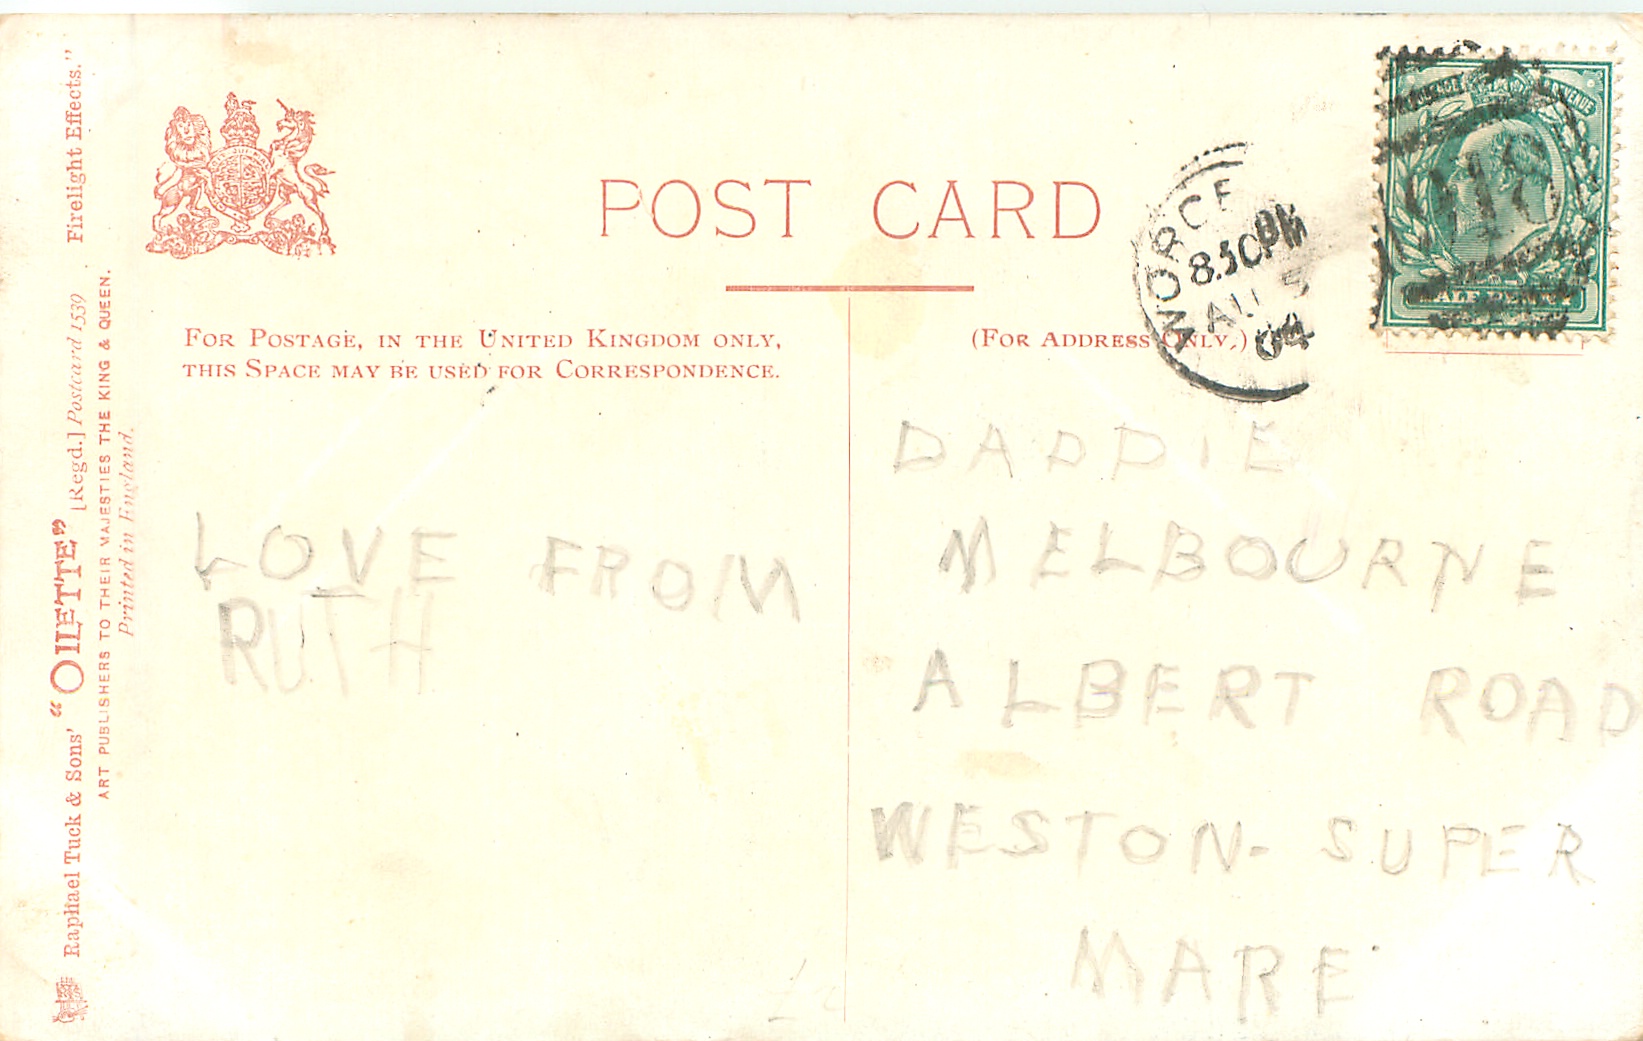 Raphael Tuck & Sons' "OILETTE" [Regd.] Postcard 1539 Firelight Effects."
ART PUBLISHERS TO THEIR MAJESTIES THE KING & QUEEN.
Printed in England.
POST CARD
FOR POSTAGE, IN THE UNITED KINGDOM ONLY,
THIS SPACE MAY BE USED FOR CORRESPONDENCE.
(FOR ADDRESS ONLY.)
WORCE
8.30PM
AU 5
04
918
HALF PENNY
LOVE FROM
RUTH
DADDIE
MELBOURNE
ALBERT ROAD
WESTON-SUPER
MARE